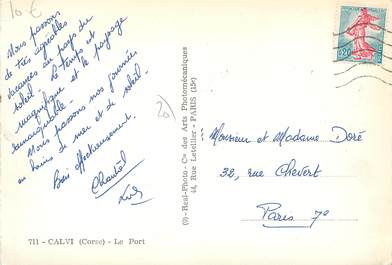 10 €
Nous passons
de très agréables
vacances au pays du
soleil. Le temps est
magnifique et le paysage
remarquable.
Nous passons nos journées
en bains de mer et de soleil.
Bien affectueusement.
Chantal
711 - CALVI (Corse) - Le Port
(D)-Real-Photo - Cie des Arts Photomécaniques
44, Rue Letellier - PARIS (15e)
20
0,20
Monsieur et Madame Doré
32, rue Chevert
Paris 7e